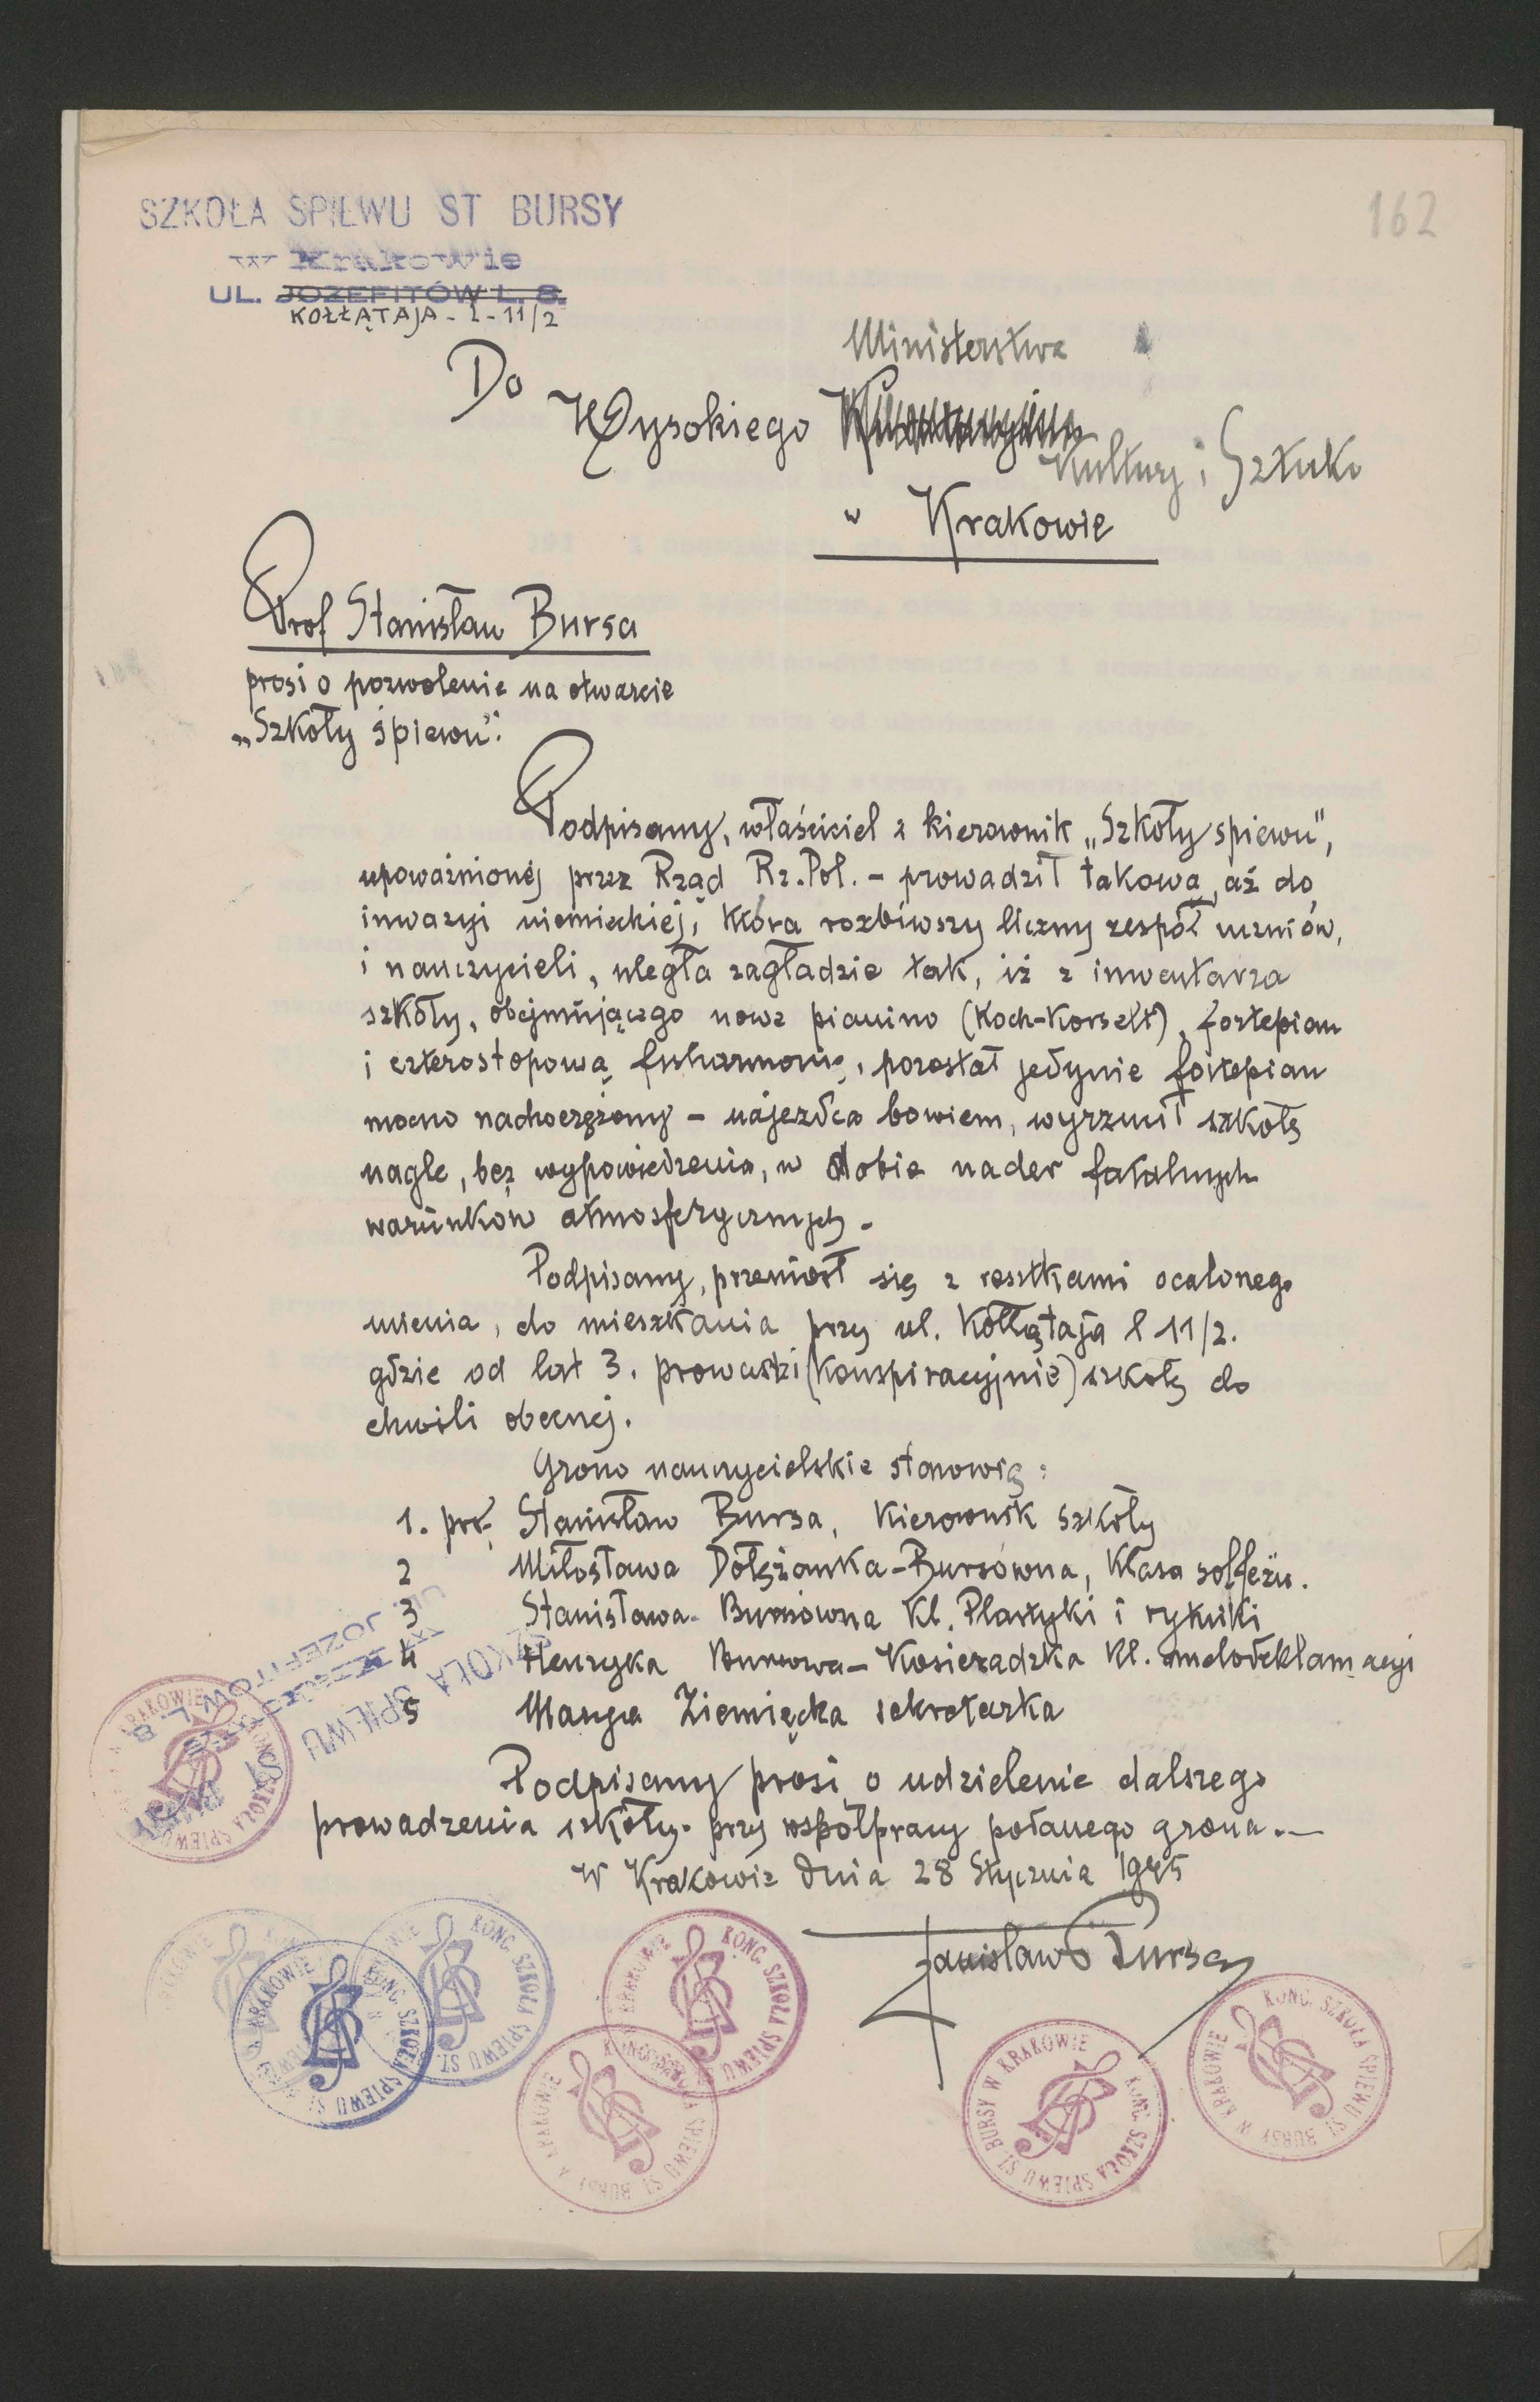 162
SZKOŁA ŚPIEWU ST BURSY
w Krakowie
UL. JOZEFITÓW L. 8.
KOŁŁĄTAJA - L - 11/2
Ministerstwa
Do
Wysokiego
Kultury i Sztuki
w Krakowie
Prof Stanisław Bursa
prosi o pozwolenie na otwarcie
„Szkoły śpiewu".
Podpisany, właściciel i kierownik „Szkoły spiewu",
upoważnionej przez Rząd Rz. Pol. - prowadził takową, aż do
inwazyi niemieckiej, która rozbiwszy liczny zespół uczniów,
i nauczycieli, uległa zagładzie tak, iż z inwentarza
szkoły, obejmującego nowe pianino (Koch-Korselt), fortepian
i czterostopową fisharmonię, pozostał jedynie fortepian
mocno nadwerężony - najezdca bowiem, wyrzucił szkołę
nagle, bez wypowiedzenia, w dobie nader fatalnych
warunków atmosferycznych.
Podpisany, przeniósł się z resztkami ocalonego
mienia, do mieszkania przy ul. Kołłątaja l 11/2.
gdzie od lat 3. prowadzi (konspiracyjnie) szkołę do
chwili obecnej.
Grono nauczycielskie stanowią:
1. prof. Stanisław Bursa, Kierownik szkoły
2 Miłosława Dołężanka-Bursówna, Klasa solfeżu.
3 Stanisława Bursówna Kl. Plastyki i rytmiki
4 Henryka Bursowa - Kosieradzka Kl. melodeklamacyi
5 Marya Ziemięcka sekretarka
SZKOŁA ŚPIEWU ST BURSY
w Krakowie
UL. JOZEFITÓW L. 8
Podpisany prosi o udzielenie dalszego
prowadzenia szkoły przy współpracy podanego grona.—
W Krakowie dnia 28 Stycznia 1945
Stanisław Bursa
KONC. SZKOŁA ŚPIEWU ST. BURSY W KRAKOWIE
KONC. SZKOŁA ŚPIEWU ST. BURSY W KRAKOWIE
KONC. SZKOŁA ŚPIEWU ST. BURSY W KRAKOWIE
KONC. SZKOŁA ŚPIEWU ST. BURSY W KRAKOWIE
KONC. SZKOŁA ŚPIEWU ST. BURSY W KRAKOWIE
KONC. SZKOŁA ŚPIEWU ST. BURSY W KRAKOWIE
KONC. SZKOŁA ŚPIEWU ST. BURSY W KRAKOWIE